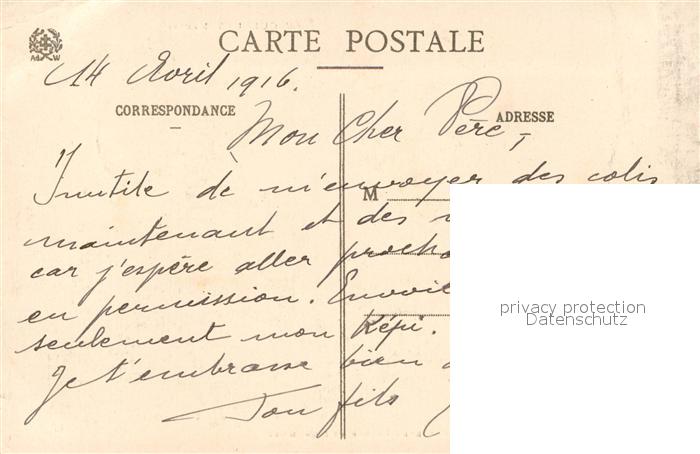 CARTE POSTALE
14 Avril 1916.
CORRESPONDANCE
ADRESSE
Mon Cher Père,
Inutile de m'envoyer des colis
M
maintenant et des
car j'espère aller
en permission. Envoie
seulement mon Képi.
Je t'embrasse bien
Ton fils
privacy protection
Datenschutz